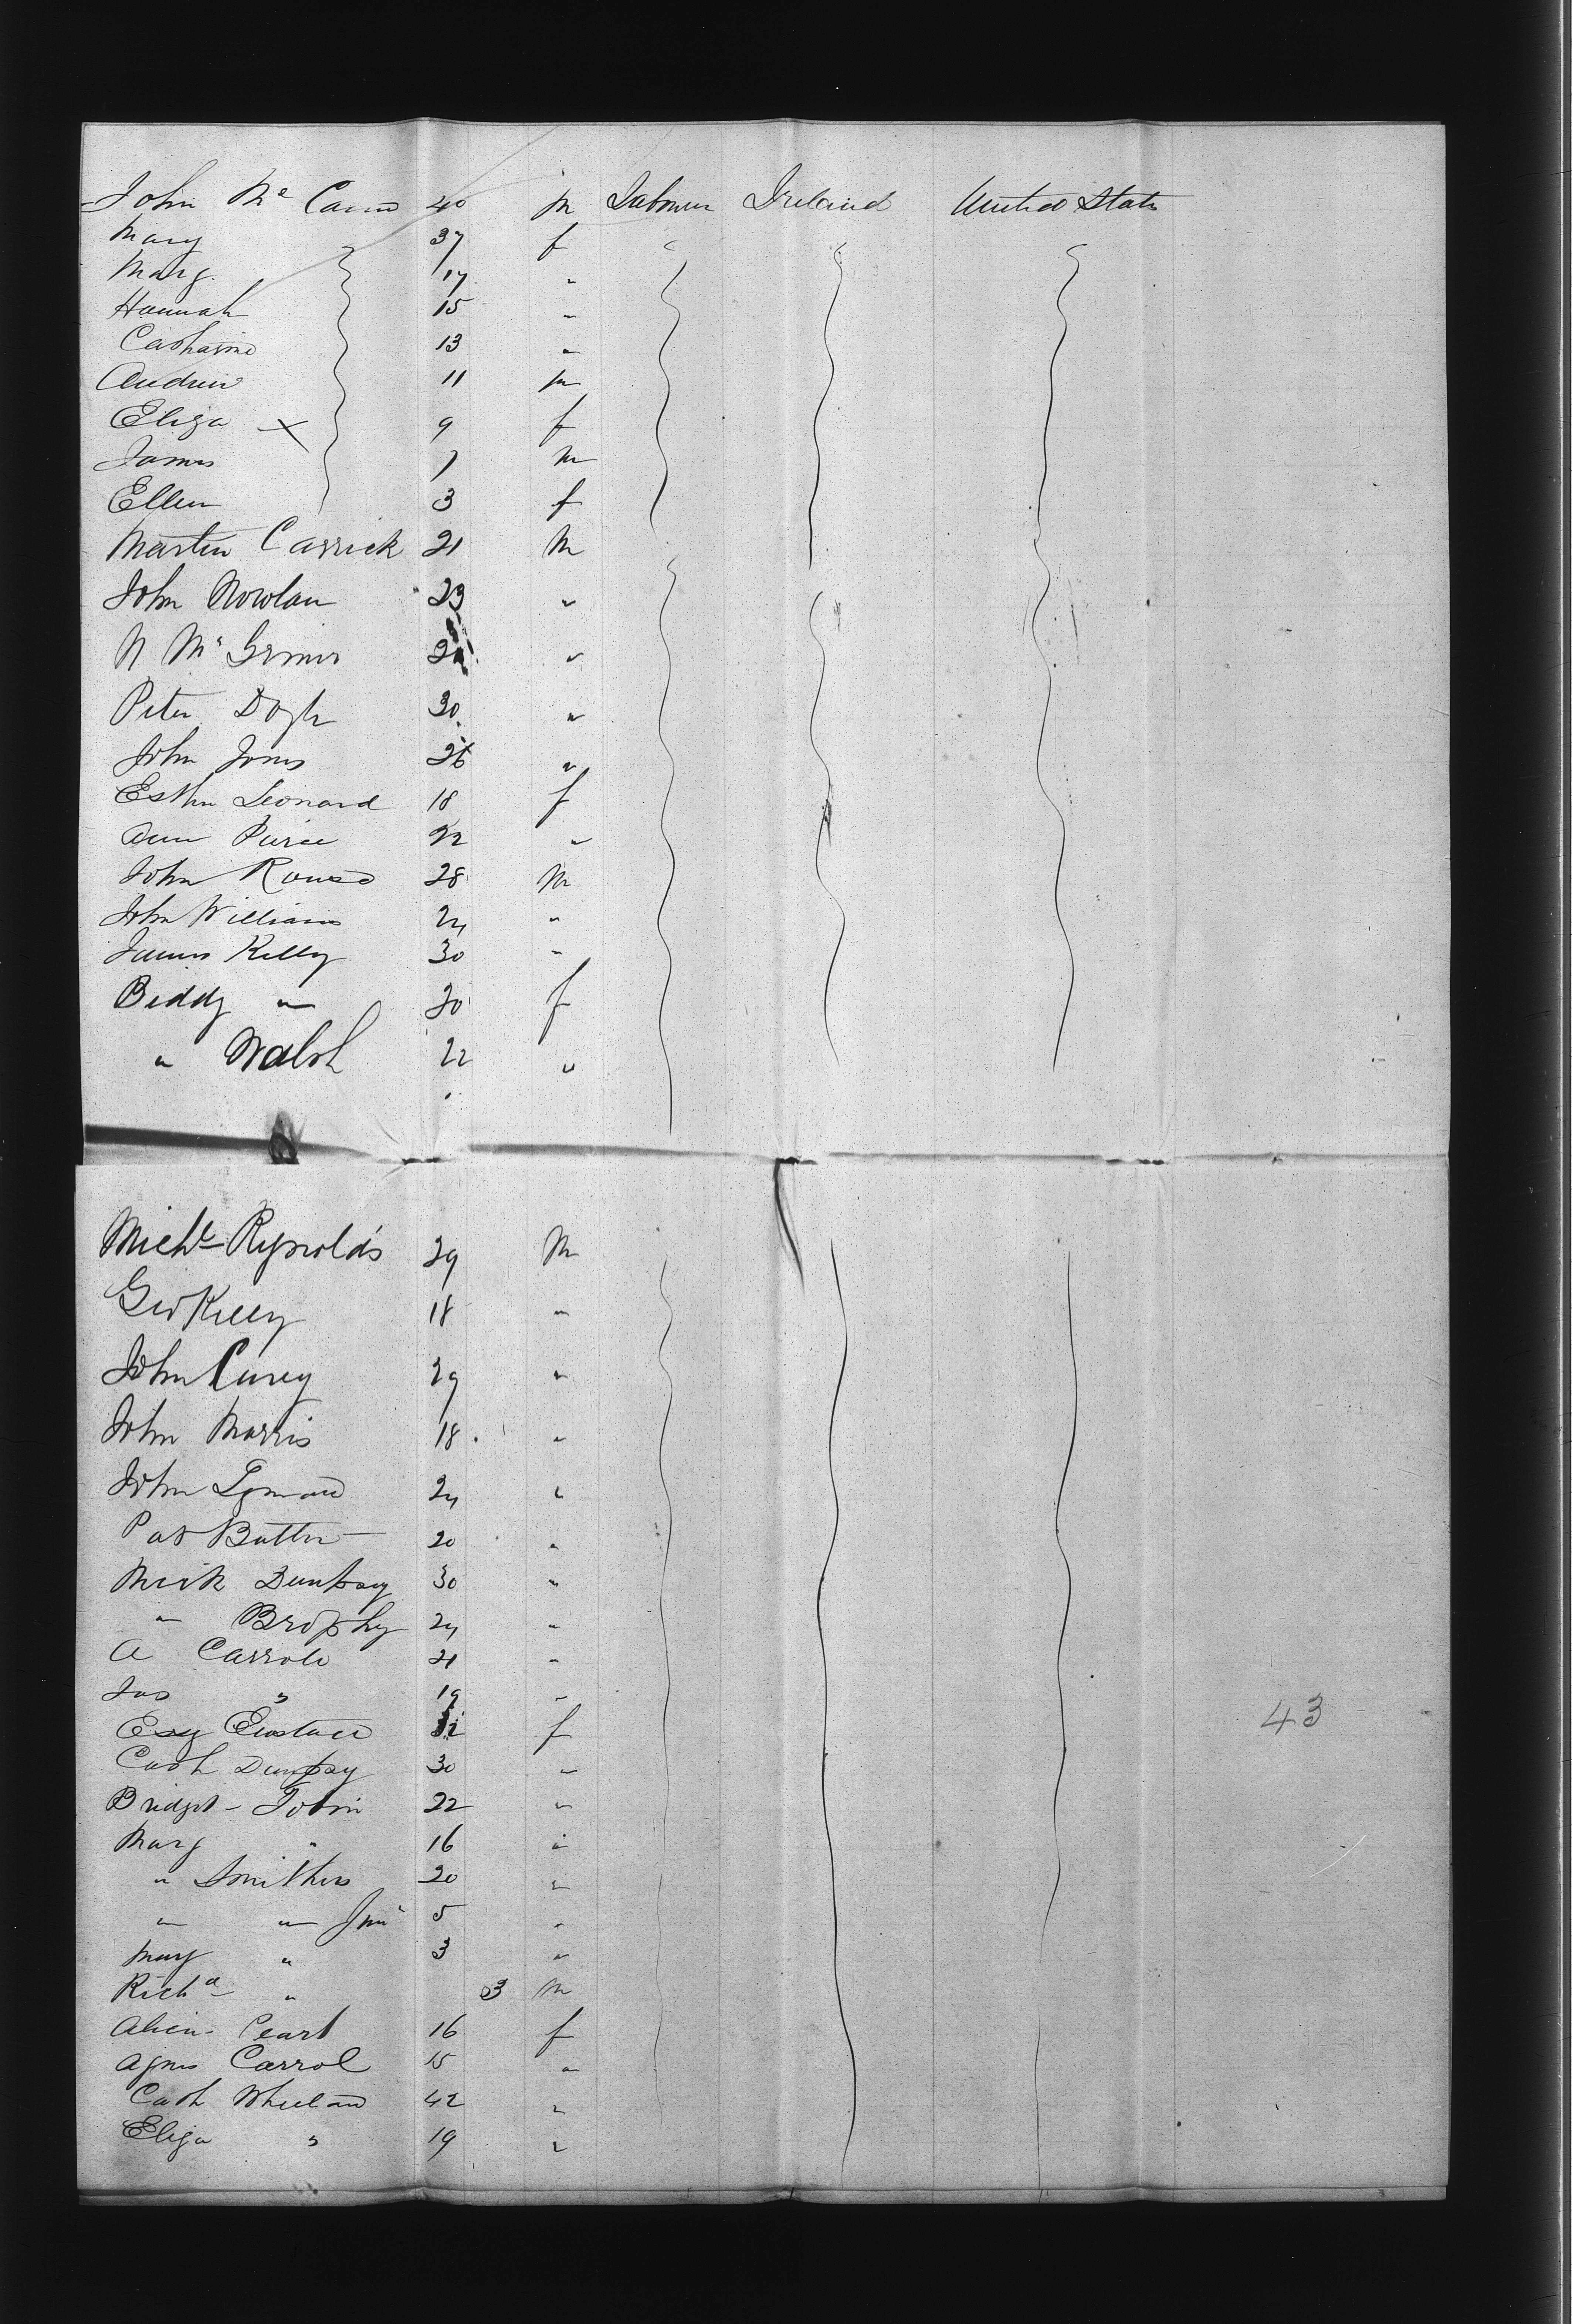 John Mc Cann 40 m Labourer Ireland United States
Mary 37 f "
Marg. 17 "
Hannah 15 "
Catharine 13 "
Andrew 11 m
Eliza × 9 f
James 7 m
Ellen 3 f
Martin Carrick 21 m
John Nowlan 23 "
N Mc 
Peter Doyle 30 "
John Jones 26 "
Esther Leonard 18 f
Ann Pierce 22 "
John Rouse 28 m
John Williams 24 "
James Kelly 30 "
Biddy " 20 f
" Walsh 22 "
Michl Rynolds 29 m
Geo Kelly 18 "
John Curey 29 "
John Morris 18 "
John 24 "
Pat Butler 20 "
Mick Dunfsey 30 "
" Brophy 24 "
A Carroll 21 "
Jas " 19 "
Essy Eustace 32 f
Cath Dunfsey 30 "
Bridget Tobin 22 "
Marg " 16 "
" Smithers 20 "
" " Junr 5 "
Mary " 3 "
Richd " 3 m
Alicia Peart 16 f
Agnes Carrol 15 "
Cath Wheelan 42 "
Eliza " 19 "
43